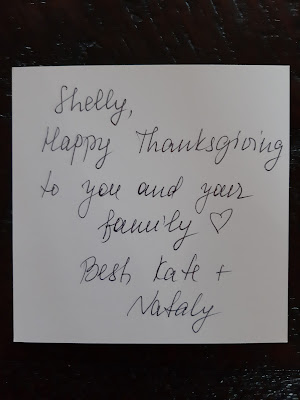 Shelly,
Happy Thanksgiving
to you and your
family ♡
Best, Kate +
Nataly